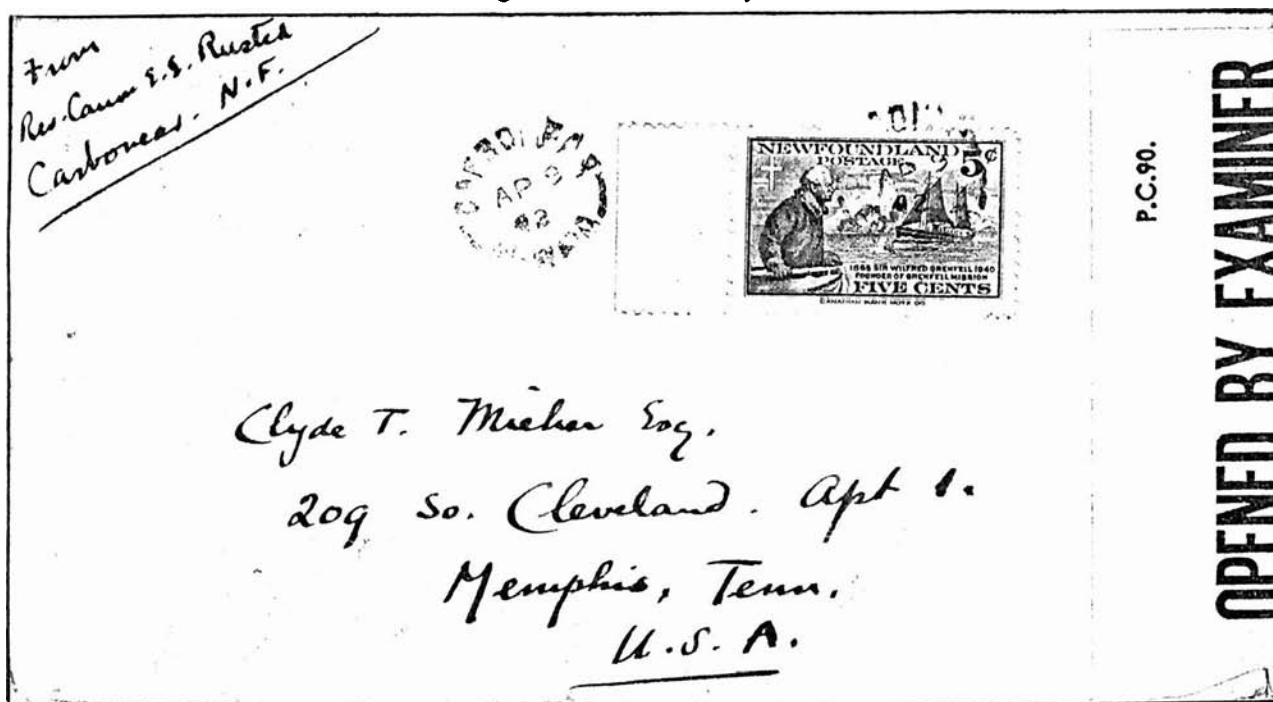 From
Rev. Canon E.E. Rusted
Carbonear. N.F.
AP 9
42
NEWFOUNDLAND 5¢
POSTAGE
1865 SIR WILFRED GRENFELL 1940
FOUNDER OF GRENFELL MISSION
FIVE CENTS
CANADIAN BANK NOTE CO
P.C.90.
OPENED BY EXAMINER
Clyde T. Esq.
209 So. Cleveland. Apt 1.
Memphis, Tenn.
U.S.A.